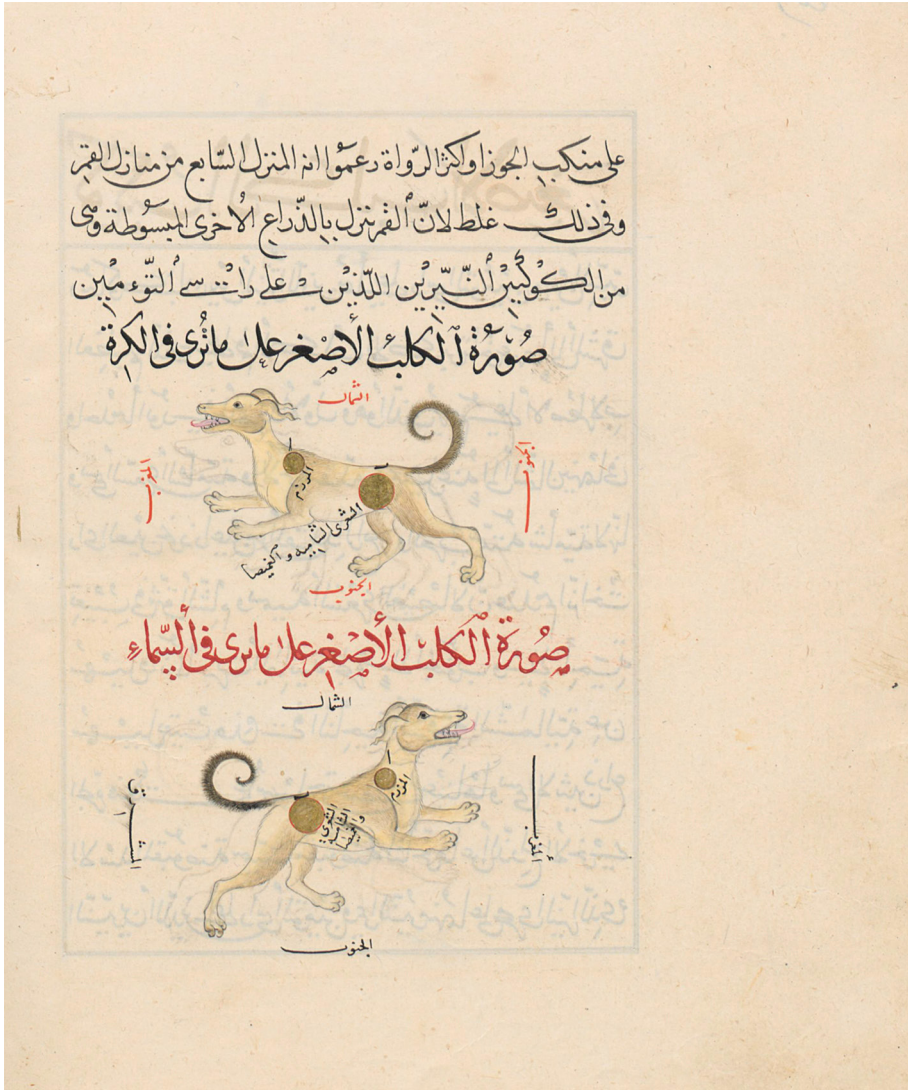 على منكب الجوزا واكثر الرواة زعموا انه المنزل السابع من منازل القمر
وفى ذلك غلط لانّ ٱلقمر ينزل بالذّراع الأخرى المبسوطة وهى
من الكوكبين ٱلنّيّرين اللّذين على راس ٱلتّوءمين
صُوْرَةُ ٱلكلبْ الأصْغر على ماتُرى فى الكرة
الشمال
الجنوب
المغرب
المرزم
الشعرى الشامية و الغميصا
الجنوب
صُورة ٱلكلبْ الأصْغر على ماىرى فى ٱلسّماء
الشمال
المرزم
الشعرى
الشامية
والغميصا
المشرق
المغرب
الجنوب